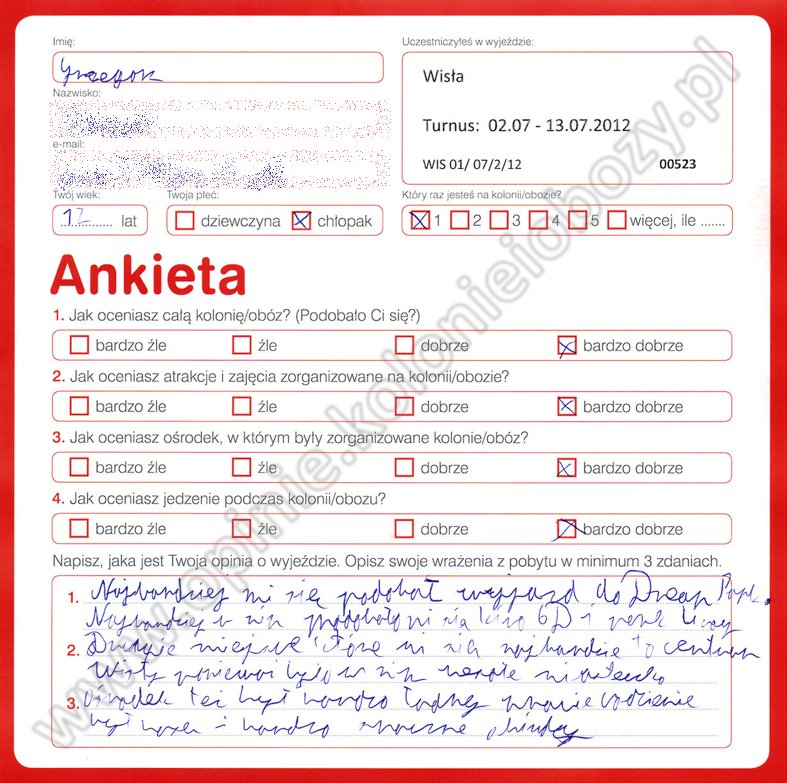 Imię:
Grzegorz
Uczestniczyłeś w wyjeździe:
Wisła
Turnus: 02.07 - 13.07.2012
WIS 01/ 07/2/12 00523
Nazwisko:
e-mail:
Twój wiek:
12 lat
Twoja płeć:
dziewczyna chłopak
Który raz jesteś na kolonii/obozie?
1 2 3 4 5 więcej, ile .......
Ankieta
1. Jak oceniasz całą kolonię/obóz? (Podobało Ci się?)
bardzo źle źle dobrze bardzo dobrze
2. Jak oceniasz atrakcje i zajęcia zorganizowane na kolonii/obozie?
bardzo źle źle dobrze bardzo dobrze
3. Jak oceniasz ośrodek, w którym były zorganizowane kolonie/obóz?
bardzo źle źle dobrze bardzo dobrze
4. Jak oceniasz jedzenie podczas kolonii/obozu?
bardzo źle źle dobrze bardzo dobrze
Napisz, jaka jest Twoja opinia o wyjeździe. Opisz swoje wrażenia z pobytu w minimum 3 zdaniach.
1. Najbardziej mi się podobał wyjazd do Dream Park.
Najbardziej w nim podobało mi się kino 6D i park
2. Drugie miejsce które mi się najbardzie to centrum
Wisły ponieważ było w nim wesołe miasteczko
3. Ośrodek też był bardzo ładny prawie codzienie
był basen i bardzo smaczne obiady
www.opinie.kolonieiobozy.pl